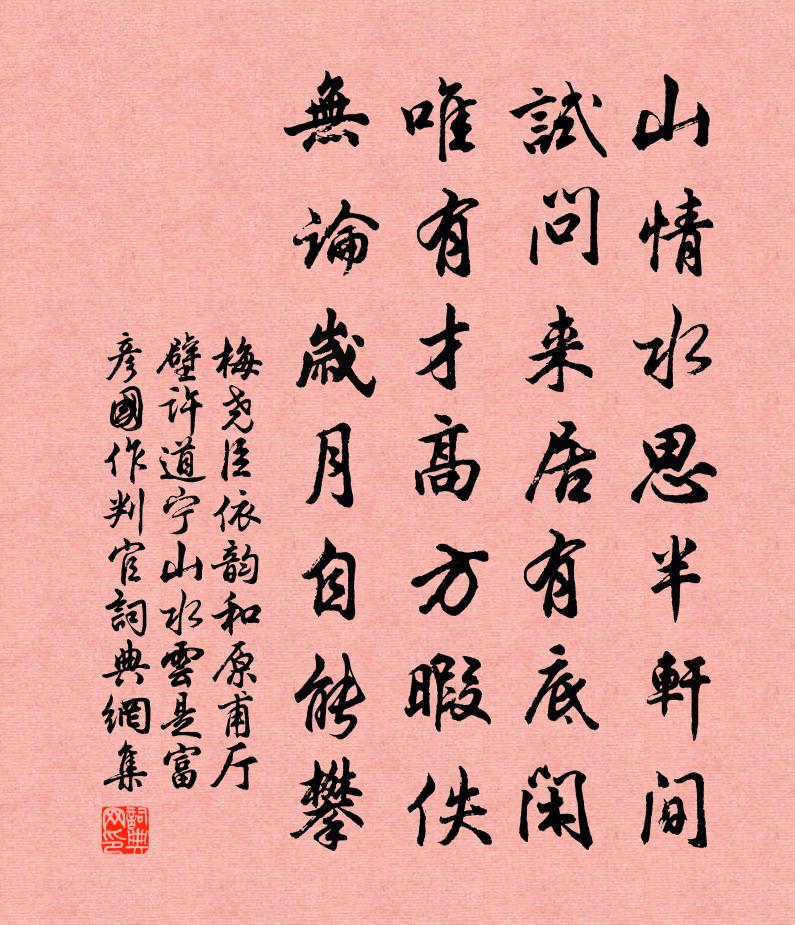 山情水思半軒間
試問来居有底閑
唯有才高方暇佚
無論歲月自能攀
梅尧臣依韵和原甫厅
壁许道宁山水雲是富
彦國作判官詞典網集
詞典网印